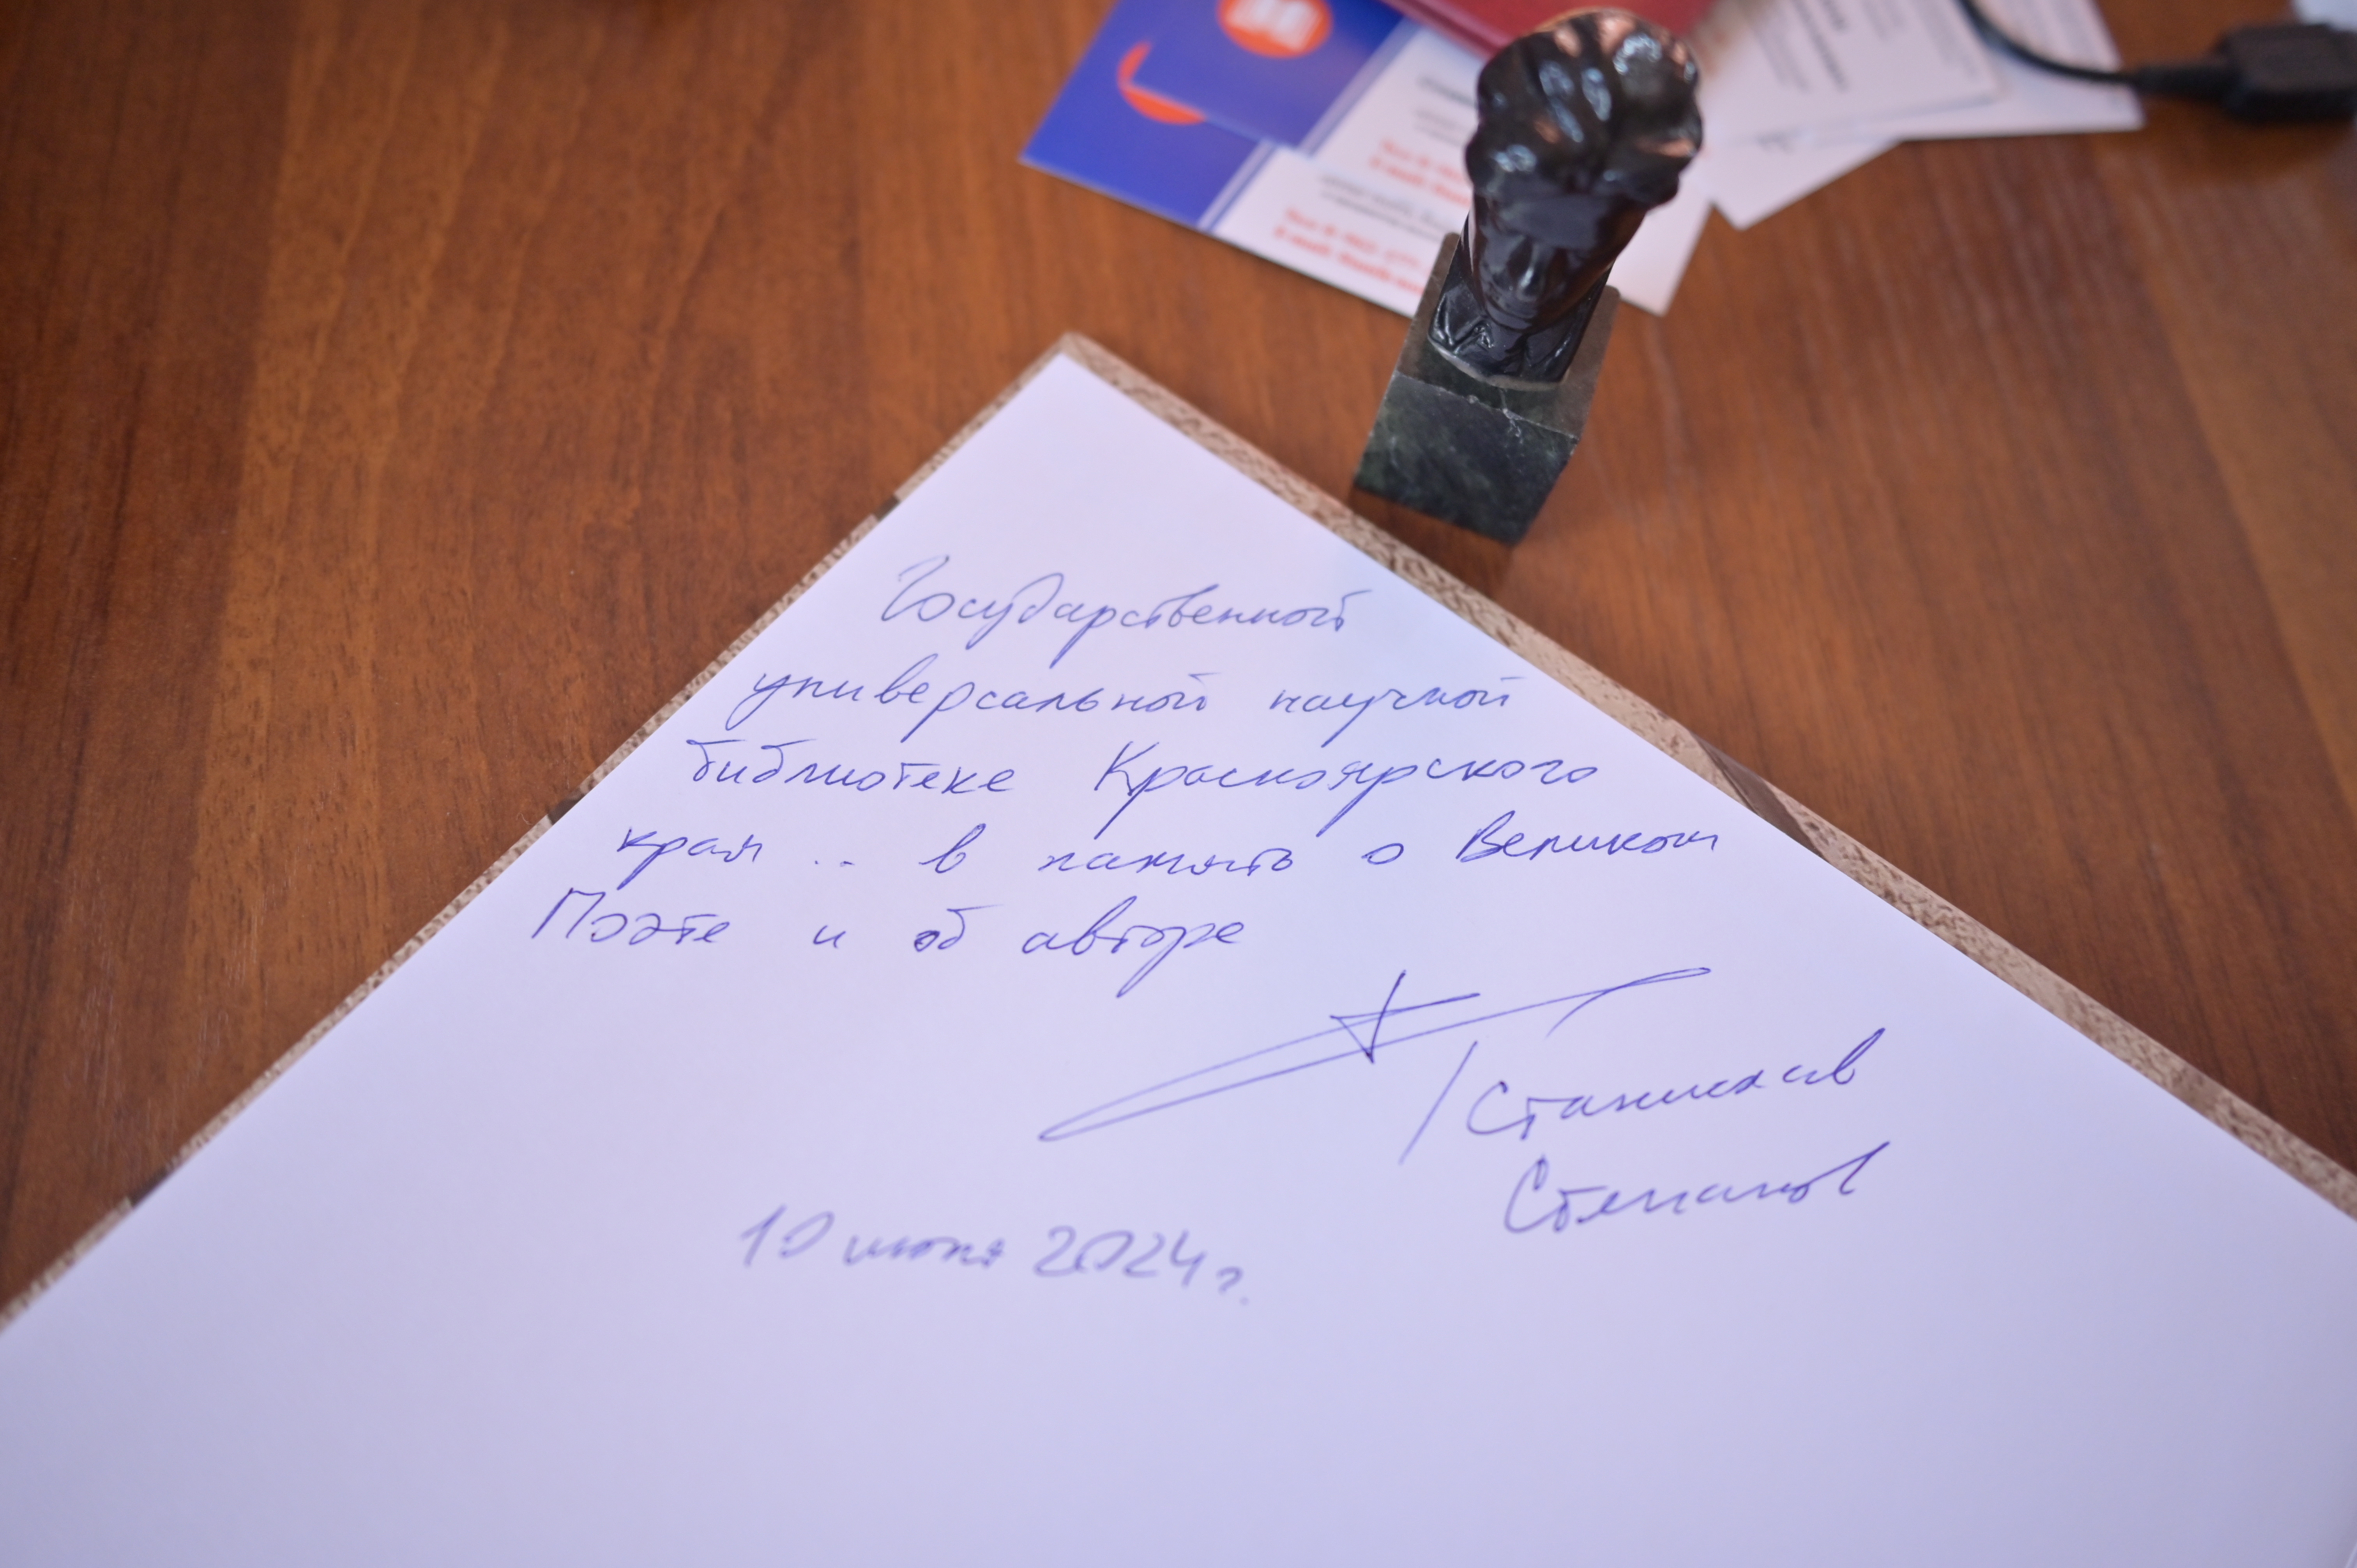 Государственной
универсальной научной
библиотеке Красноярского
края .. в память о Великом
Поэте и об авторе
/Станислав
Степанов
10 июня 2024 г.